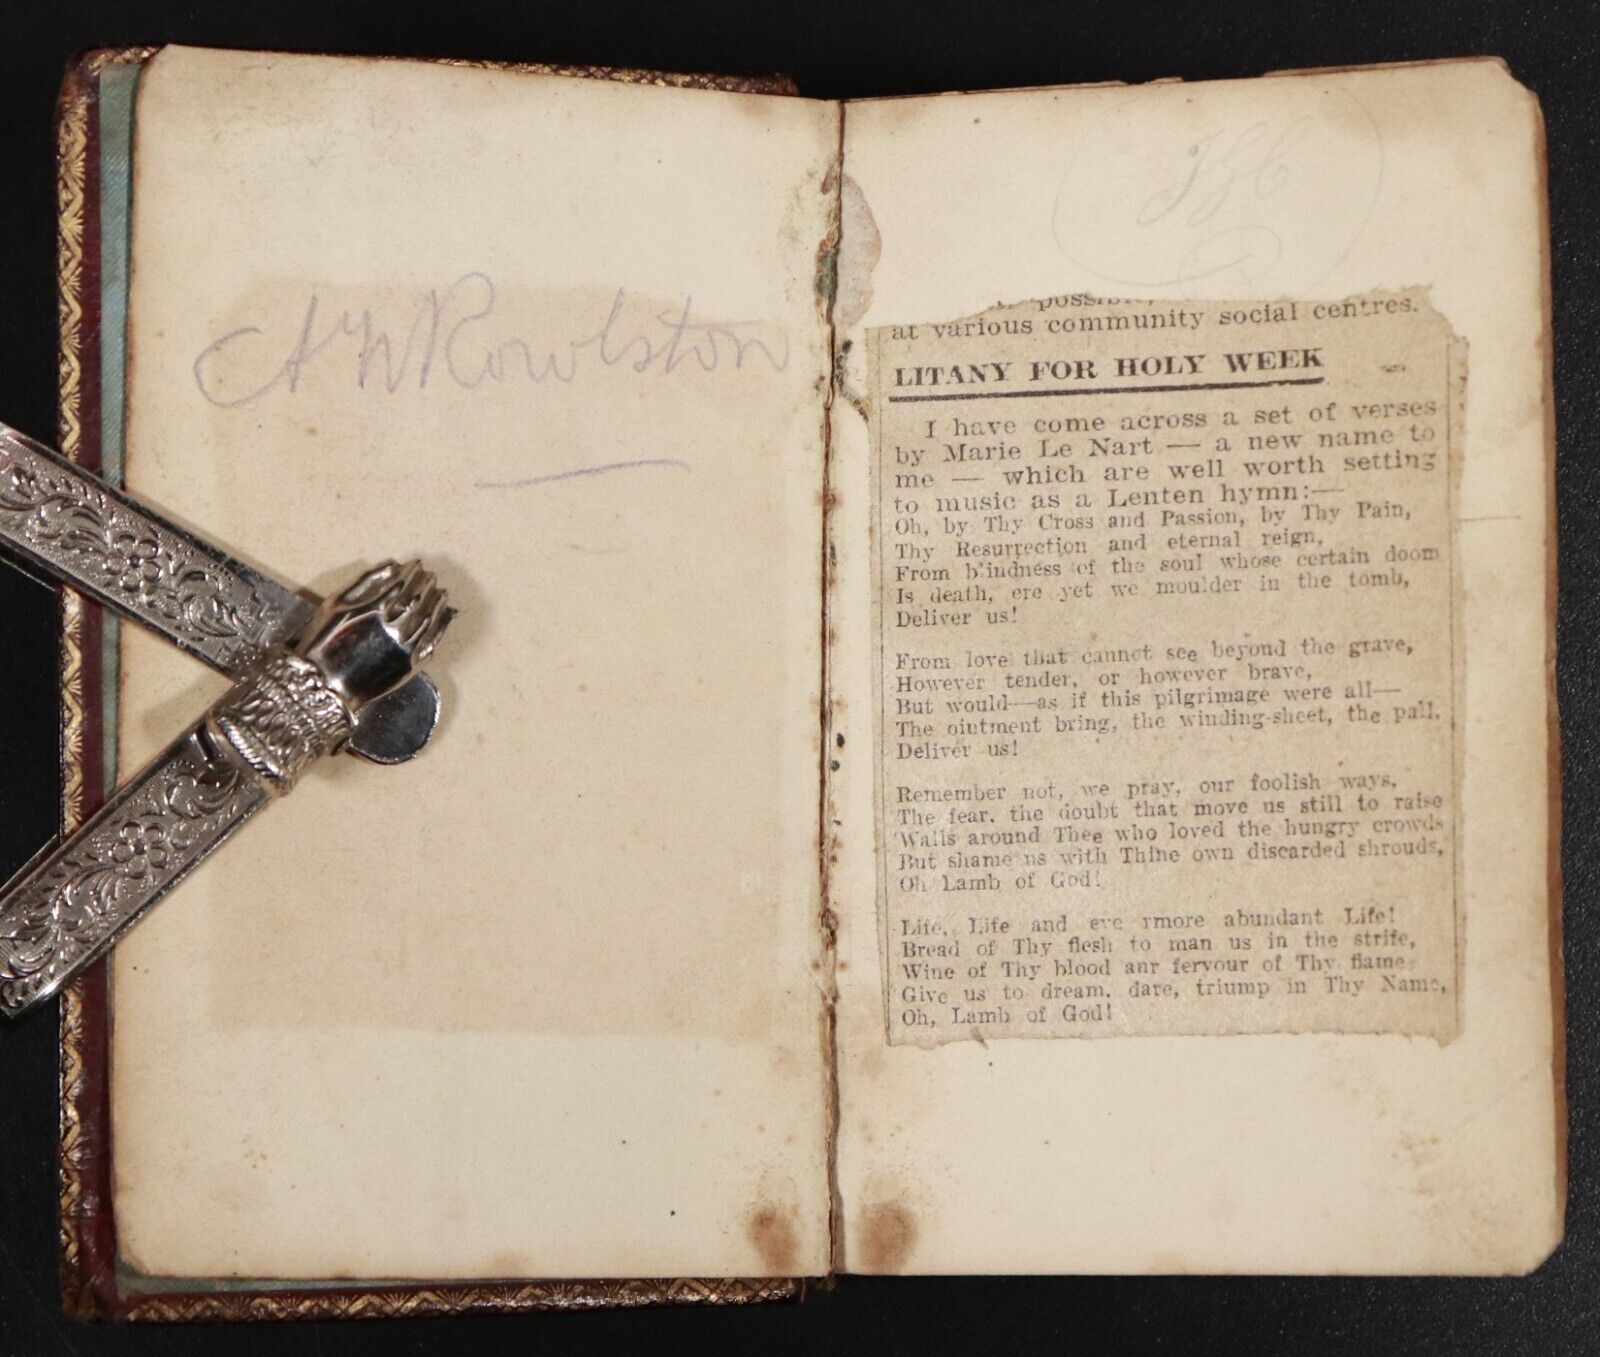 Rowlston
possible,
at various community social centres.
LITANY FOR HOLY WEEK
I have come across a set of verses
by Marie Le Nart — a new name to
me — which are well worth setting
to music as a Lenten hymn:—
Oh, by Thy Cross and Passion, by Thy Pain,
Thy Resurrection and eternal reign,
From b'indness of the soul whose certain doom
Is death, ere yet we moulder in the tomb,
Deliver us!
From love that cannot see beyond the grave,
However tender, or however brave,
But would—as if this pilgrimage were all—
The ointment bring, the winding-sheet, the pall,
Deliver us!
Remember not, we pray, our foolish ways,
The fear, the doubt that move us still to raise
Walls around Thee who loved the hungry crowds
But shame us with Thine own discarded shrouds,
Oh Lamb of God!
Life, Life and eve rmore abundant Life!
Bread of Thy flesh to man us in the strife,
Wine of Thy blood anr fervour of Thy flame
Give us to dream, dare, triump in Thy Name,
Oh, Lamb of God!